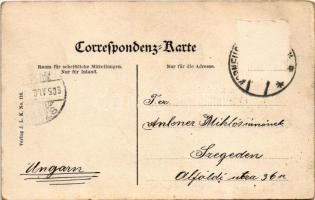 Correspondenz-Karte
Raum für schriftliche Mitteilungen.
Nur für Inland.
Nur für die Adresse.
Verlag J. L. K. No. 118.
Miklósnénak
Szegeden
Alföldi utca 36
Ungarn